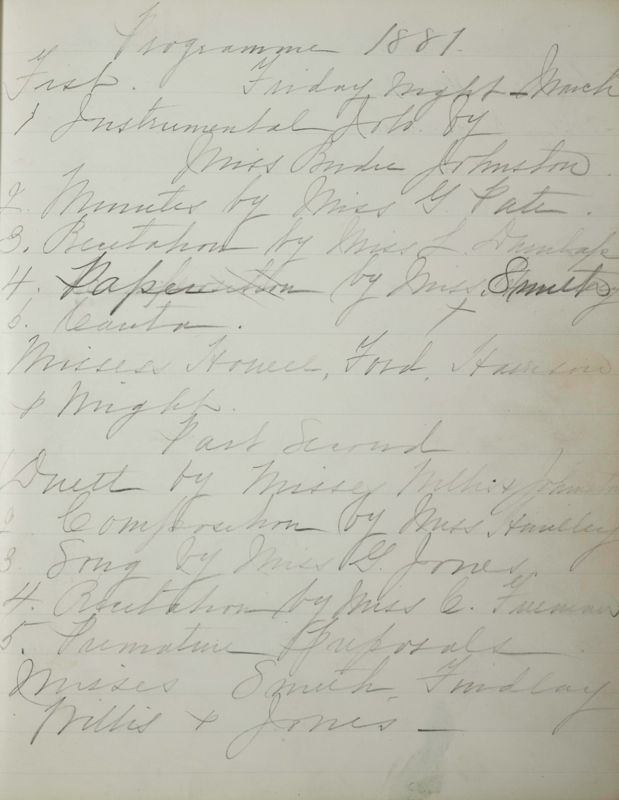 Programme 1881.
First. Friday Night March
1 Instrumental Solo. by
Miss Birdie Johnston.
2. Minutes by Miss G. Pate.
3. Recitation by Miss L. Dunlap
4. Paper by Miss Smith
5.
Misses Howell, Ford, Harrison
& Wright.
Part Second
1 Duett by Misses Willis & Johnston
2 Composition by Miss
3. Song by Miss G. Jones
4. Recitation by Miss C. Freeman
5. Premature Proposals
Misses Smith, Findlay
Willis & Jones —